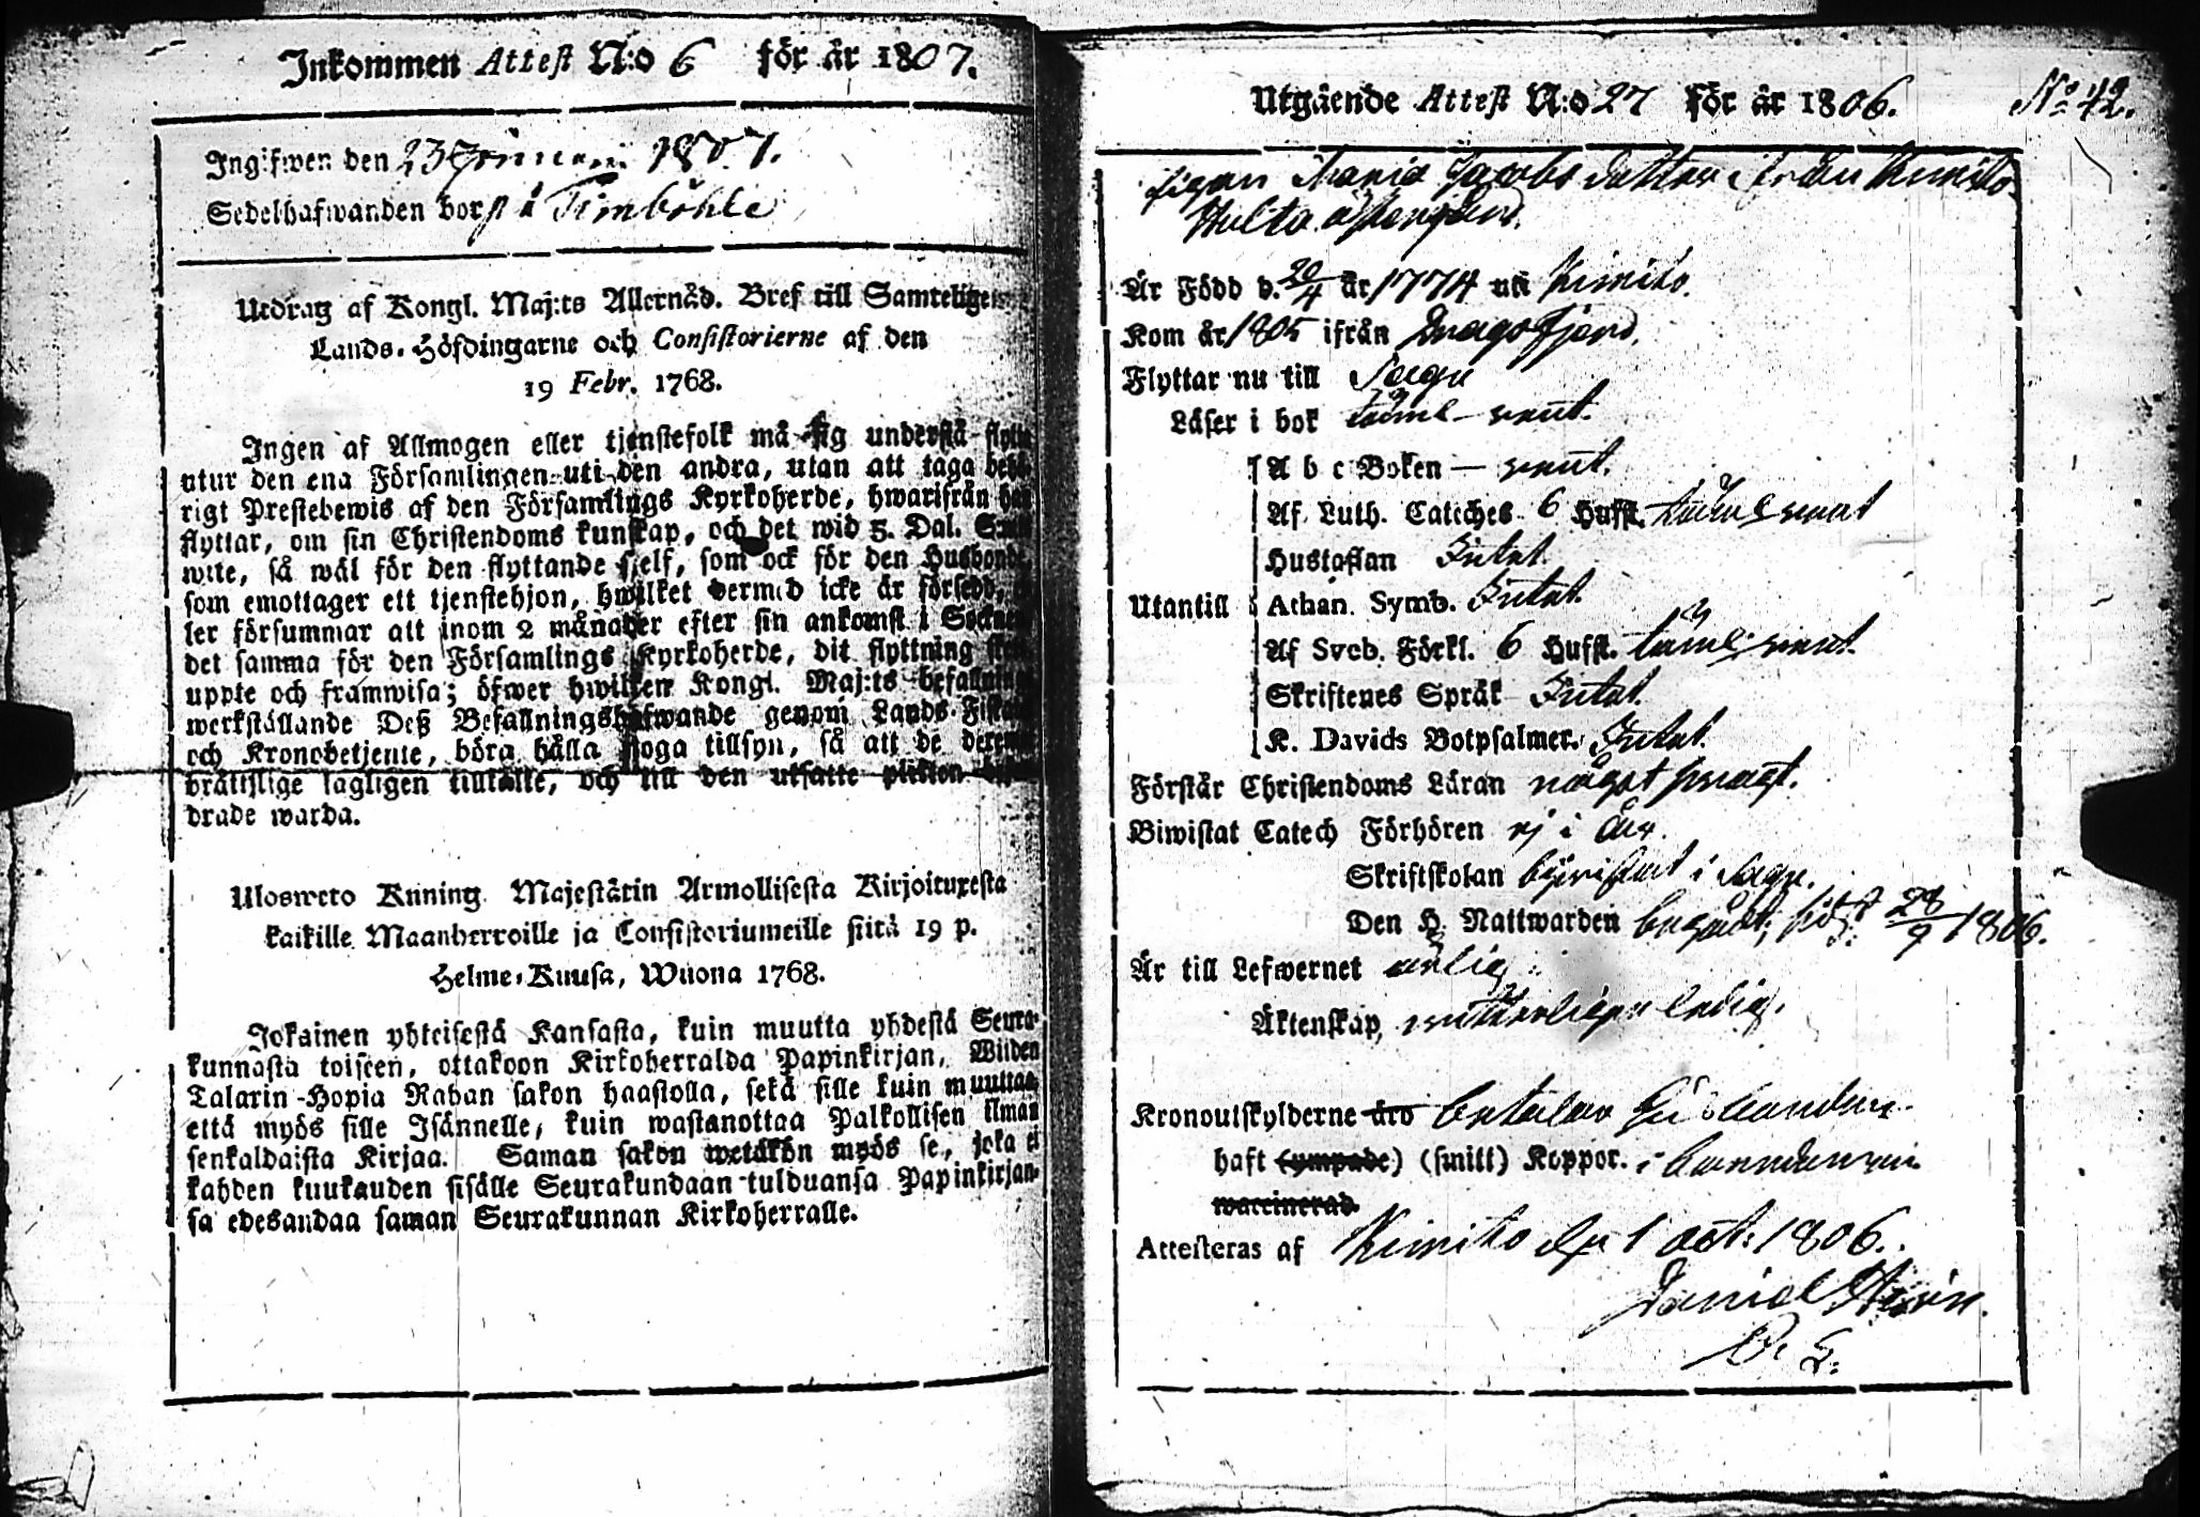 Inkommen Attest N:o 6 för år 1807.
Ingifwen den 23 Januari 1807.
Sedelhafwanden bor på Timböhle
Utdrag af Kongl. Maj:ts Allernåd. Bref till Samtelige
Lands-Höfdingarne och Consistorierne af den
19 Febr. 1768.
Ingen af Allmogen eller tjenstefolk må sig understå flytta
utur den ena Församlingen uti den andra, utan att taga behö-
rigt Prestebewis af den Församlings Kyrkoherde, hwarifrån han
flyttar, om sin Christendoms kunskap, och det wid 5. Dal. S:mt
wite, så wäl för den flyttande sjelf, som ock för den Husbonde,
som emottager ett tjenstehjon, hwilket dermed icke är försedd,
ler försummar att inom 2 månader efter sin ankomst i Socknen
det samma för den Församlings Kyrkoherde, dit flyttning sker
uppte och framwisa; öfwer hwilken Kongl. Maj:ts befallning
werkställande Deß Befallningshafwande genom Lands-Fiskaler
och Kronobetjente, böra hålla noga tillsyn, så att de deremot
bråttslige lagligen tilltalte, och till den utsatte plikten
drade warda.
Ulosweto Kuning. Majestätin Armollisesta Kirjoituxesta
kaikille Maanherroille ja Consistoriumeille siitä 19 p.
Helme-Kuusa, Wuona 1768.
Jokainen yhteisestä Kansasta, kuin muutta yhdestä Seura-
kunnasta toiseen, ottakoon Kirkoherralda Papinkirjan, Wiiden
Talarin Hopia Rahan sakon haastolla, sekä sille kuin muuttaa,
että myös sille Isännelle, kuin wastanottaa Palkollisen ilman
senkaldaista Kirjaa. Saman sakon wetäkön myös se, joka ei
kahden kuukauden sisälle Seurakundaan tulduansa Papinkirjan-
sa edesandaa saman Seurakunnan Kirkoherralle.
Utgående Attest N:o 27 för år 1806. No 42.
Pigan Maria Jacobs dotter ifrån Kimito
Hulta
Är Född d. 20/4 år 1774 uti Kimito.
Kom år 1805 ifrån Dragsfjerd.
Flyttar nu till Sagu
Läser i bok täml. rent.
A b c Boken — rent.
Af Luth. Catches. 6 Hufst. täml. rent
Hustaflan Intet.
Utantill Athan. Symb. Intet.
Af Sveb. Förkl. 6 Hufst. täml. rent.
Skriftenes Språk Intet.
K. Davids Botpsalmer. Intet.
Förstår Christendoms Läran något swagt.
Biwistat Catech Förhören ej i år.
Skriftskolan bijwistat i Sagu.
Den H. Nattwarden begådt, sidst 28/9 1806.
Är till Lefwernet ärlig.
Äktenskap, witterligen ledig.
Kronoutskylderne äro betalar Husbonden.
haft (ympade) (smitt) Koppor. i barndomen.
waccinerad.
Attesteras af Kimito d. 1 Oct. 1806.
Daniel